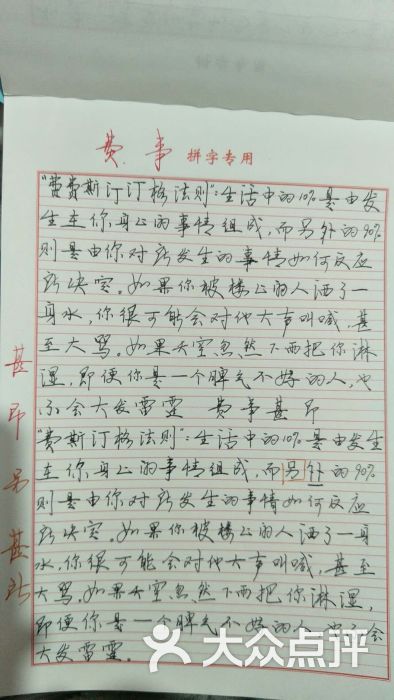 费 事 拼字专用
"费费斯汀汀格法则":生活中的10%是由发
生在你身上的事情组成,而另外的90%
则是由你对所发生的事情如何反应
所决定。如果你被楼上的人洒了一
身水,你很可能会对他大声叫喊,甚
至大骂。如果天空忽然下雨把你淋
湿,即便你是一个脾气不好的人,也
不会大发雷霆 费事甚昂
"费斯汀格法则":生活中的10%是由发生
在你身上的事情组成,而另外的90%
则是由你对所发生的事情如何反应
所决定。如果你被楼上的人洒了一身
水,你很可能会对他大声叫喊,甚至
大骂。如果天空忽然下雨把你淋湿,
即便你是一个脾气不好的人,也不会
大发雷霆。
甚昂另甚所
大众点评